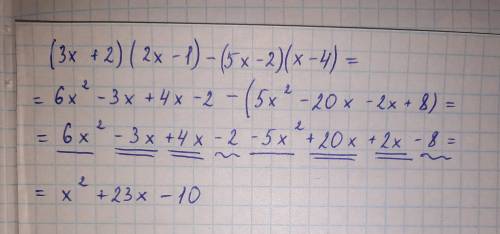 (3x + 2)(2x - 1) - (5x - 2)(x - 4) =
= 6x² - 3x + 4x - 2 - (5x² - 20x - 2x + 8) =
= 6x² - 3x + 4x - 2 - 5x² + 20x + 2x - 8 =
= x² + 23x - 10